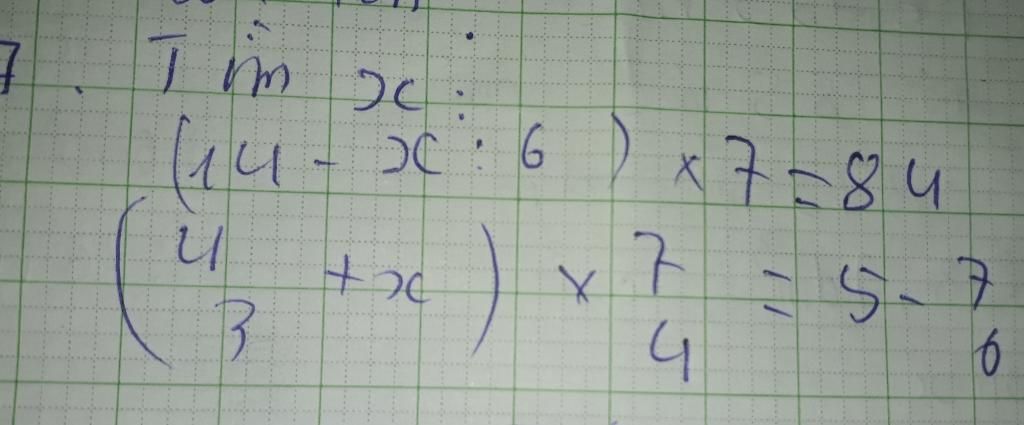 7. Tìm x:
(14 - x : 6) × 7 = 84
(4/3 + x) × 7/4 = 5 - 7/6